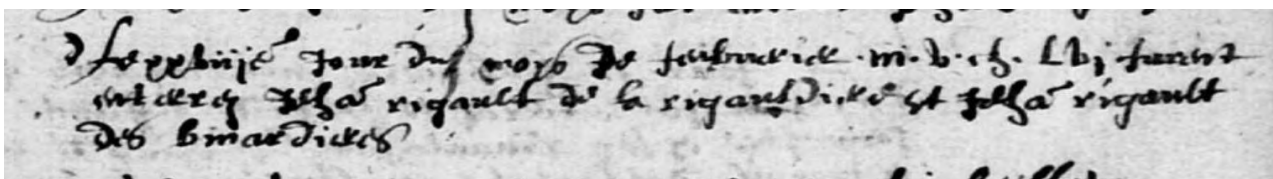 Le xxviije jour du moys de febvrier m. v. ch. lvj furent
enterrez Jeha rigault de la rigauldiere et Jeha rigault
des binardieres